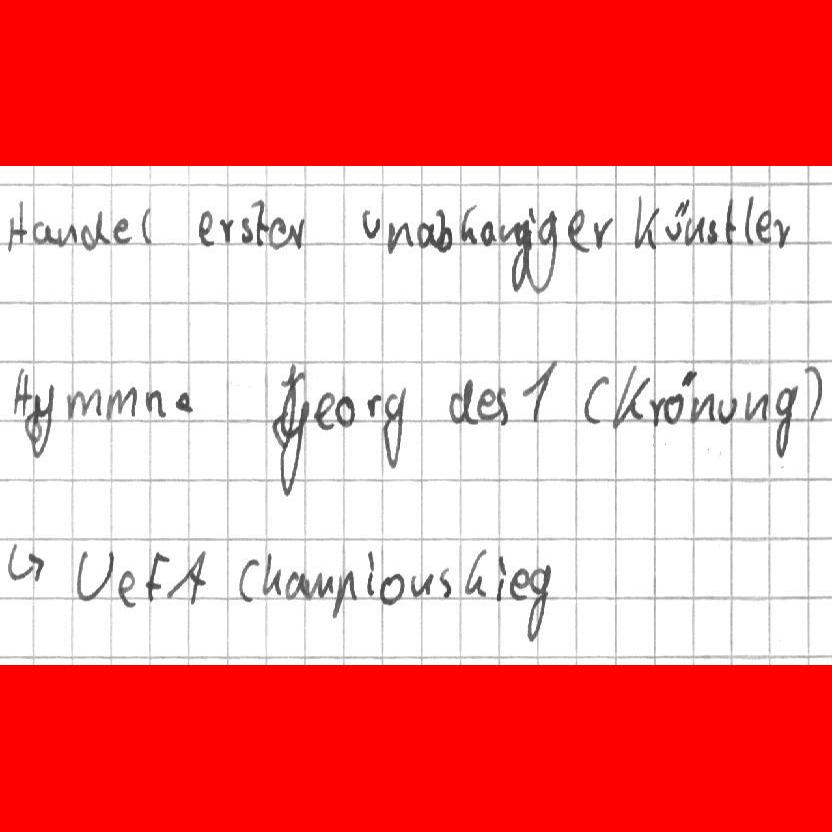 Handel erster unabhangiger Künstler
Hymmne Georg des 1 (Krönung)
↳ UeFA Champions lieg